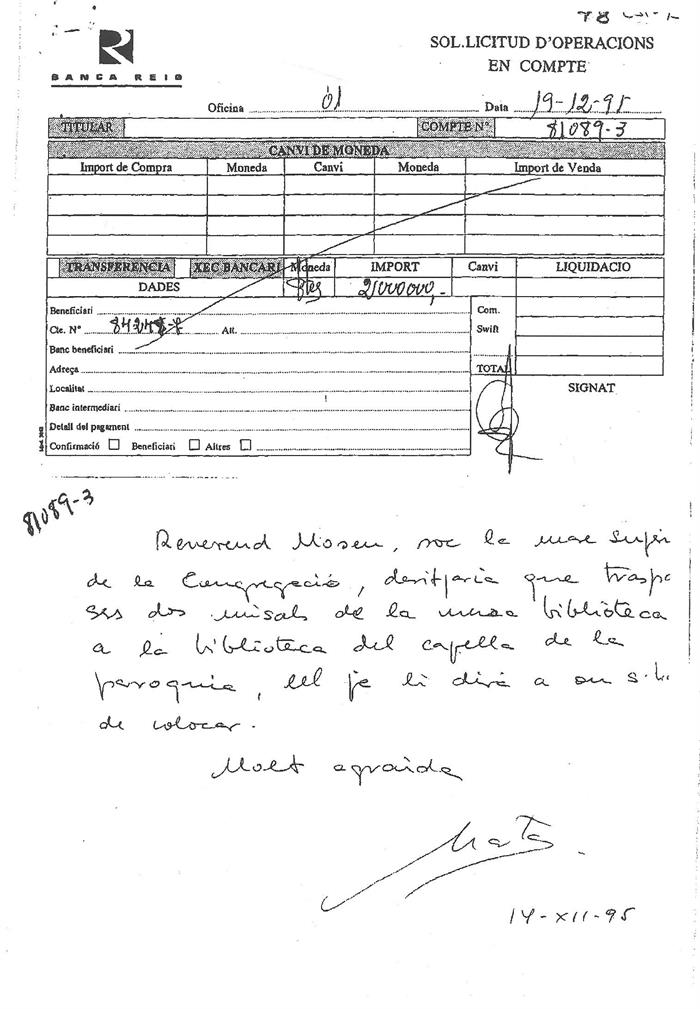 BANCA REIG
SOL.LICITUD D'OPERACIONS
EN COMPTE
Oficina 01 Data 19-12-95
TITULAR COMPTE Nº. 81089-3
CANVI DE MONEDA
Import de Compra Moneda Canvi Moneda Import de Venda
TRANSFERENCIA XEC BANCARI Moneda IMPORT Canvi LIQUIDACIO
DADES Ptes 2.000.000,-
Beneficiari Com.
Cte. Nº Att. Swift
Banc beneficiari
Adreça TOTAL
Localitat SIGNAT
Banc intermediari
Detall del pagament
Confirmació Beneficiari Altres
81089-3
Reverend Mosen, soc la mare super
de la Congregació, desitjaria que traspa
ses dos misals de la meva biblioteca
a la biblioteca del capella de la
paroquia, ell ja li dirà a on s.ha
de colocar.
Molt agraida
Marta
14-XII-95